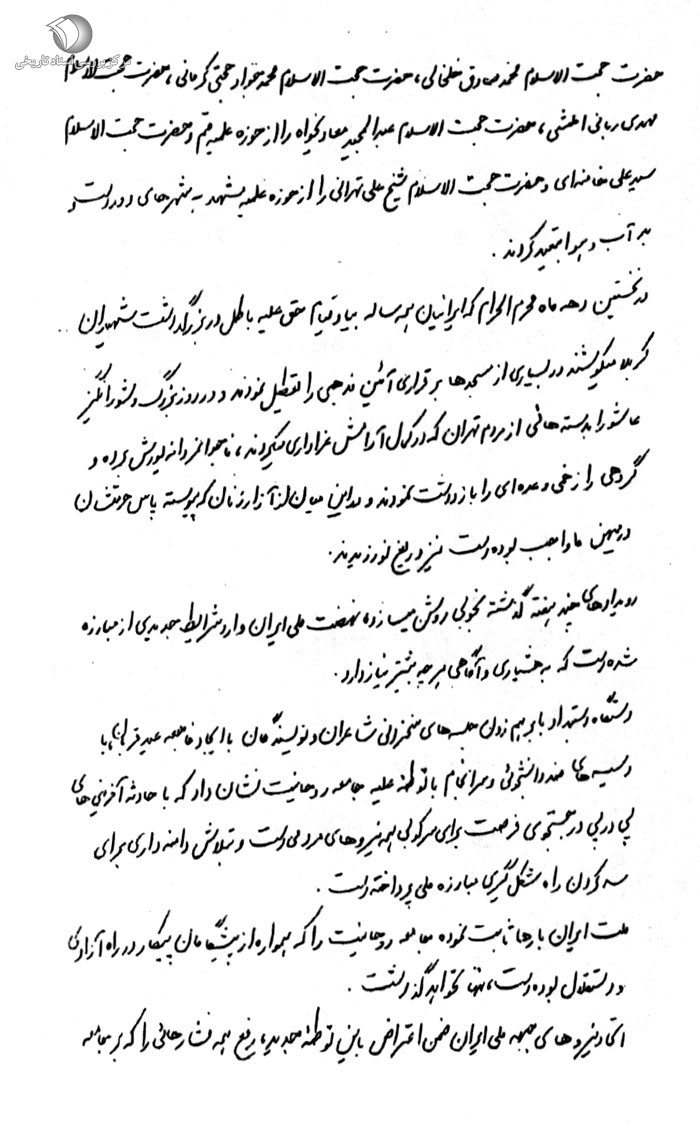 مرکز بررسی اسناد تاریخی
حضرت حجت الاسلام محمد صادق خلخالی ، حضرت حجت الاسلام محمد جواد حجتی کرمانی ، حضرت حجت الاسلام
مهدی ربانی املشی ، حضرت حجت الاسلام عبدالمجید معادیخواه را از حوزه علمیه قم و حضرت حجت الاسلام
سید علی خامنه‌ای و حضرت حجت الاسلام شیخ علی تهرانی را از حوزه علمیه مشهد به شهرهای دور دست و
بد آب و هوا تبعید کردند .
در نخستین دهه ماه محرم الحرام که ایرانیان همه ساله بیاد قیام حق علیه باطل در بزرگداشت شهیدان
کربلا میکوشند در بسیاری از مسجدها برقراری آئین مذهبی را تعطیل نمودند و در روز بزرگ و شورانگیز
عاشورا بدسته هائی از مردم تهران که در کمال آرامش عزاداری میکردند ، ناجوانمردانه یورش برده و
گروهی را زخمی و عده‌ای را بازداشت نمودند و در این میان از آزار زنان که پیوسته پاس حرمتشان
در میهن ما واجب بوده است نیز دریغ نورزیدند .
رویدادهای چند هفته گذشته بخوبی روشن میسازد ، نهضت ملی ایران وارد شرایط جدیدی از مبارزه
شده است که به هشیاری و آگاهی هر چه بیشتر نیاز دارد .
دستگاه استبداد با برهم زدن جلسه‌های سخنرانی شاعران و نویسندگان با ایجاد فاجعه عید قربان ، با
دسیسه های ضد دانشجوئی و سرانجام با توطئه علیه جامعه روحانیت نشان داد که با حادثه آفرینی های
پی در پی در جستجوی فرصت برای سرکوبی همه نیروهای مردمی است و بتلاش دامنه داری برای
سد کردن راه شکل گیری مبارزه ملی پرداخته است .
ملت ایران بارها ثابت نموده جامعه روحانیت را که همواره از پیشگامان پیکار در راه آزادی
و استقلال بوده است ، تنها نخواهد گذاشت .
اتحاد نیروهای جبهه ملی ایران ضمن اعتراض باین توطئه جدید ، رفع همه فشارهائی را که بر جامعه